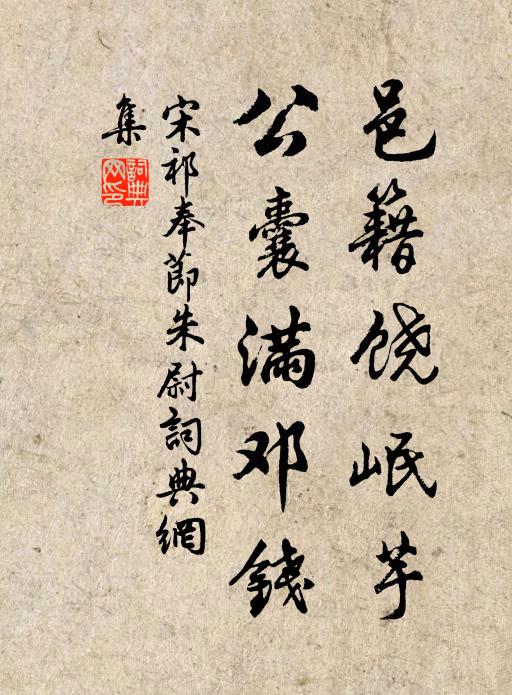 邑籍饶岷芋
公囊满邓錢
宋祁奉節朱尉詞典網
集
詞典網印